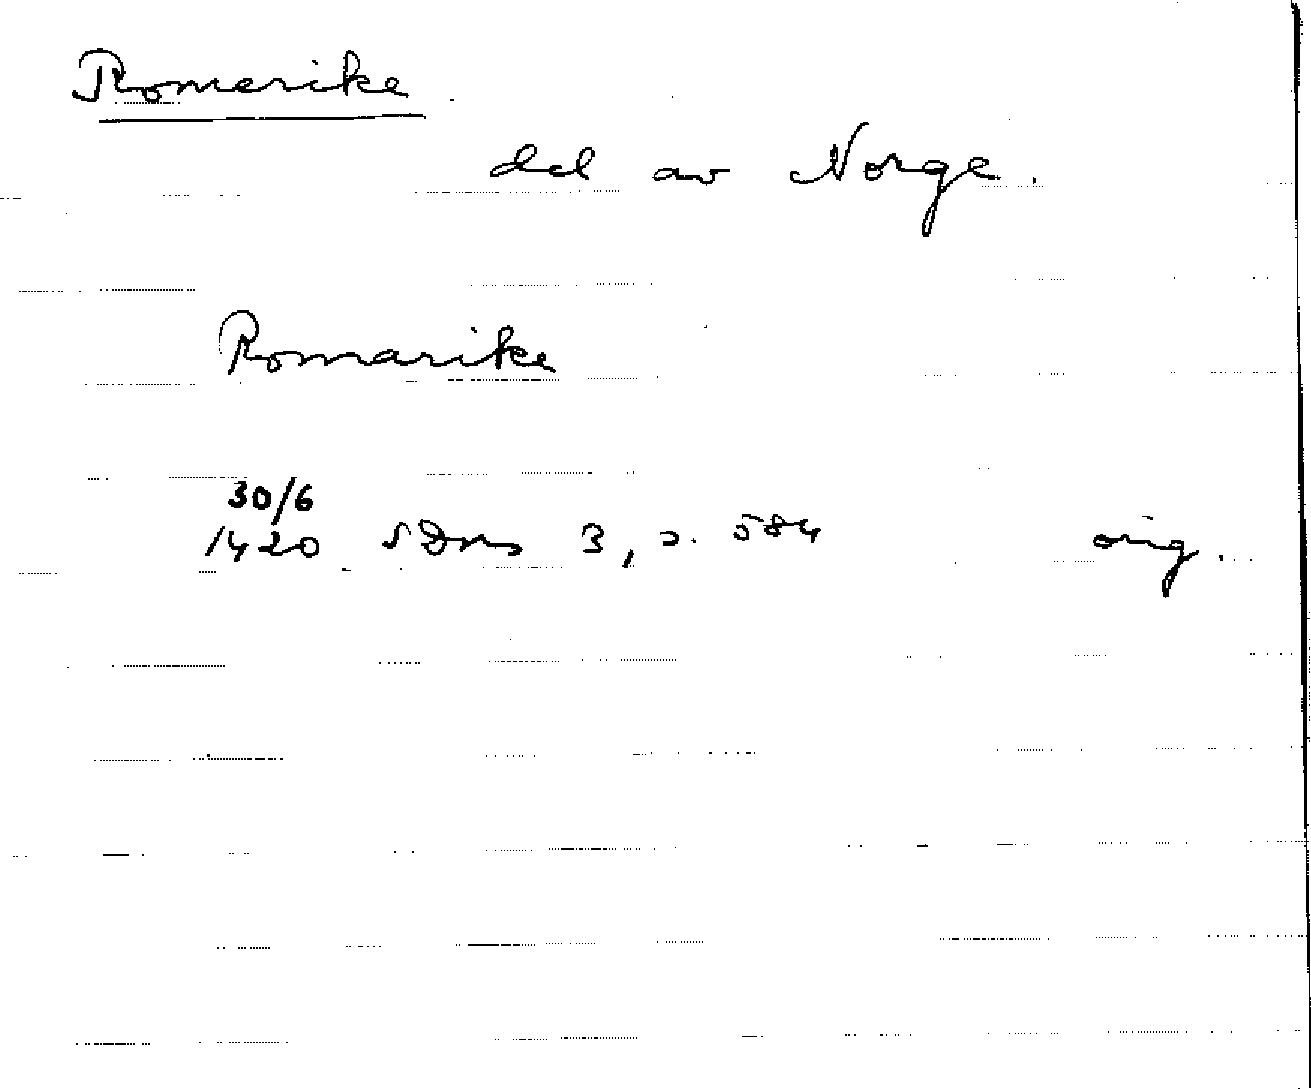 Romerike
del av Norge.
Romarike
30/6
1420 SDns 3, s. 584 orig.